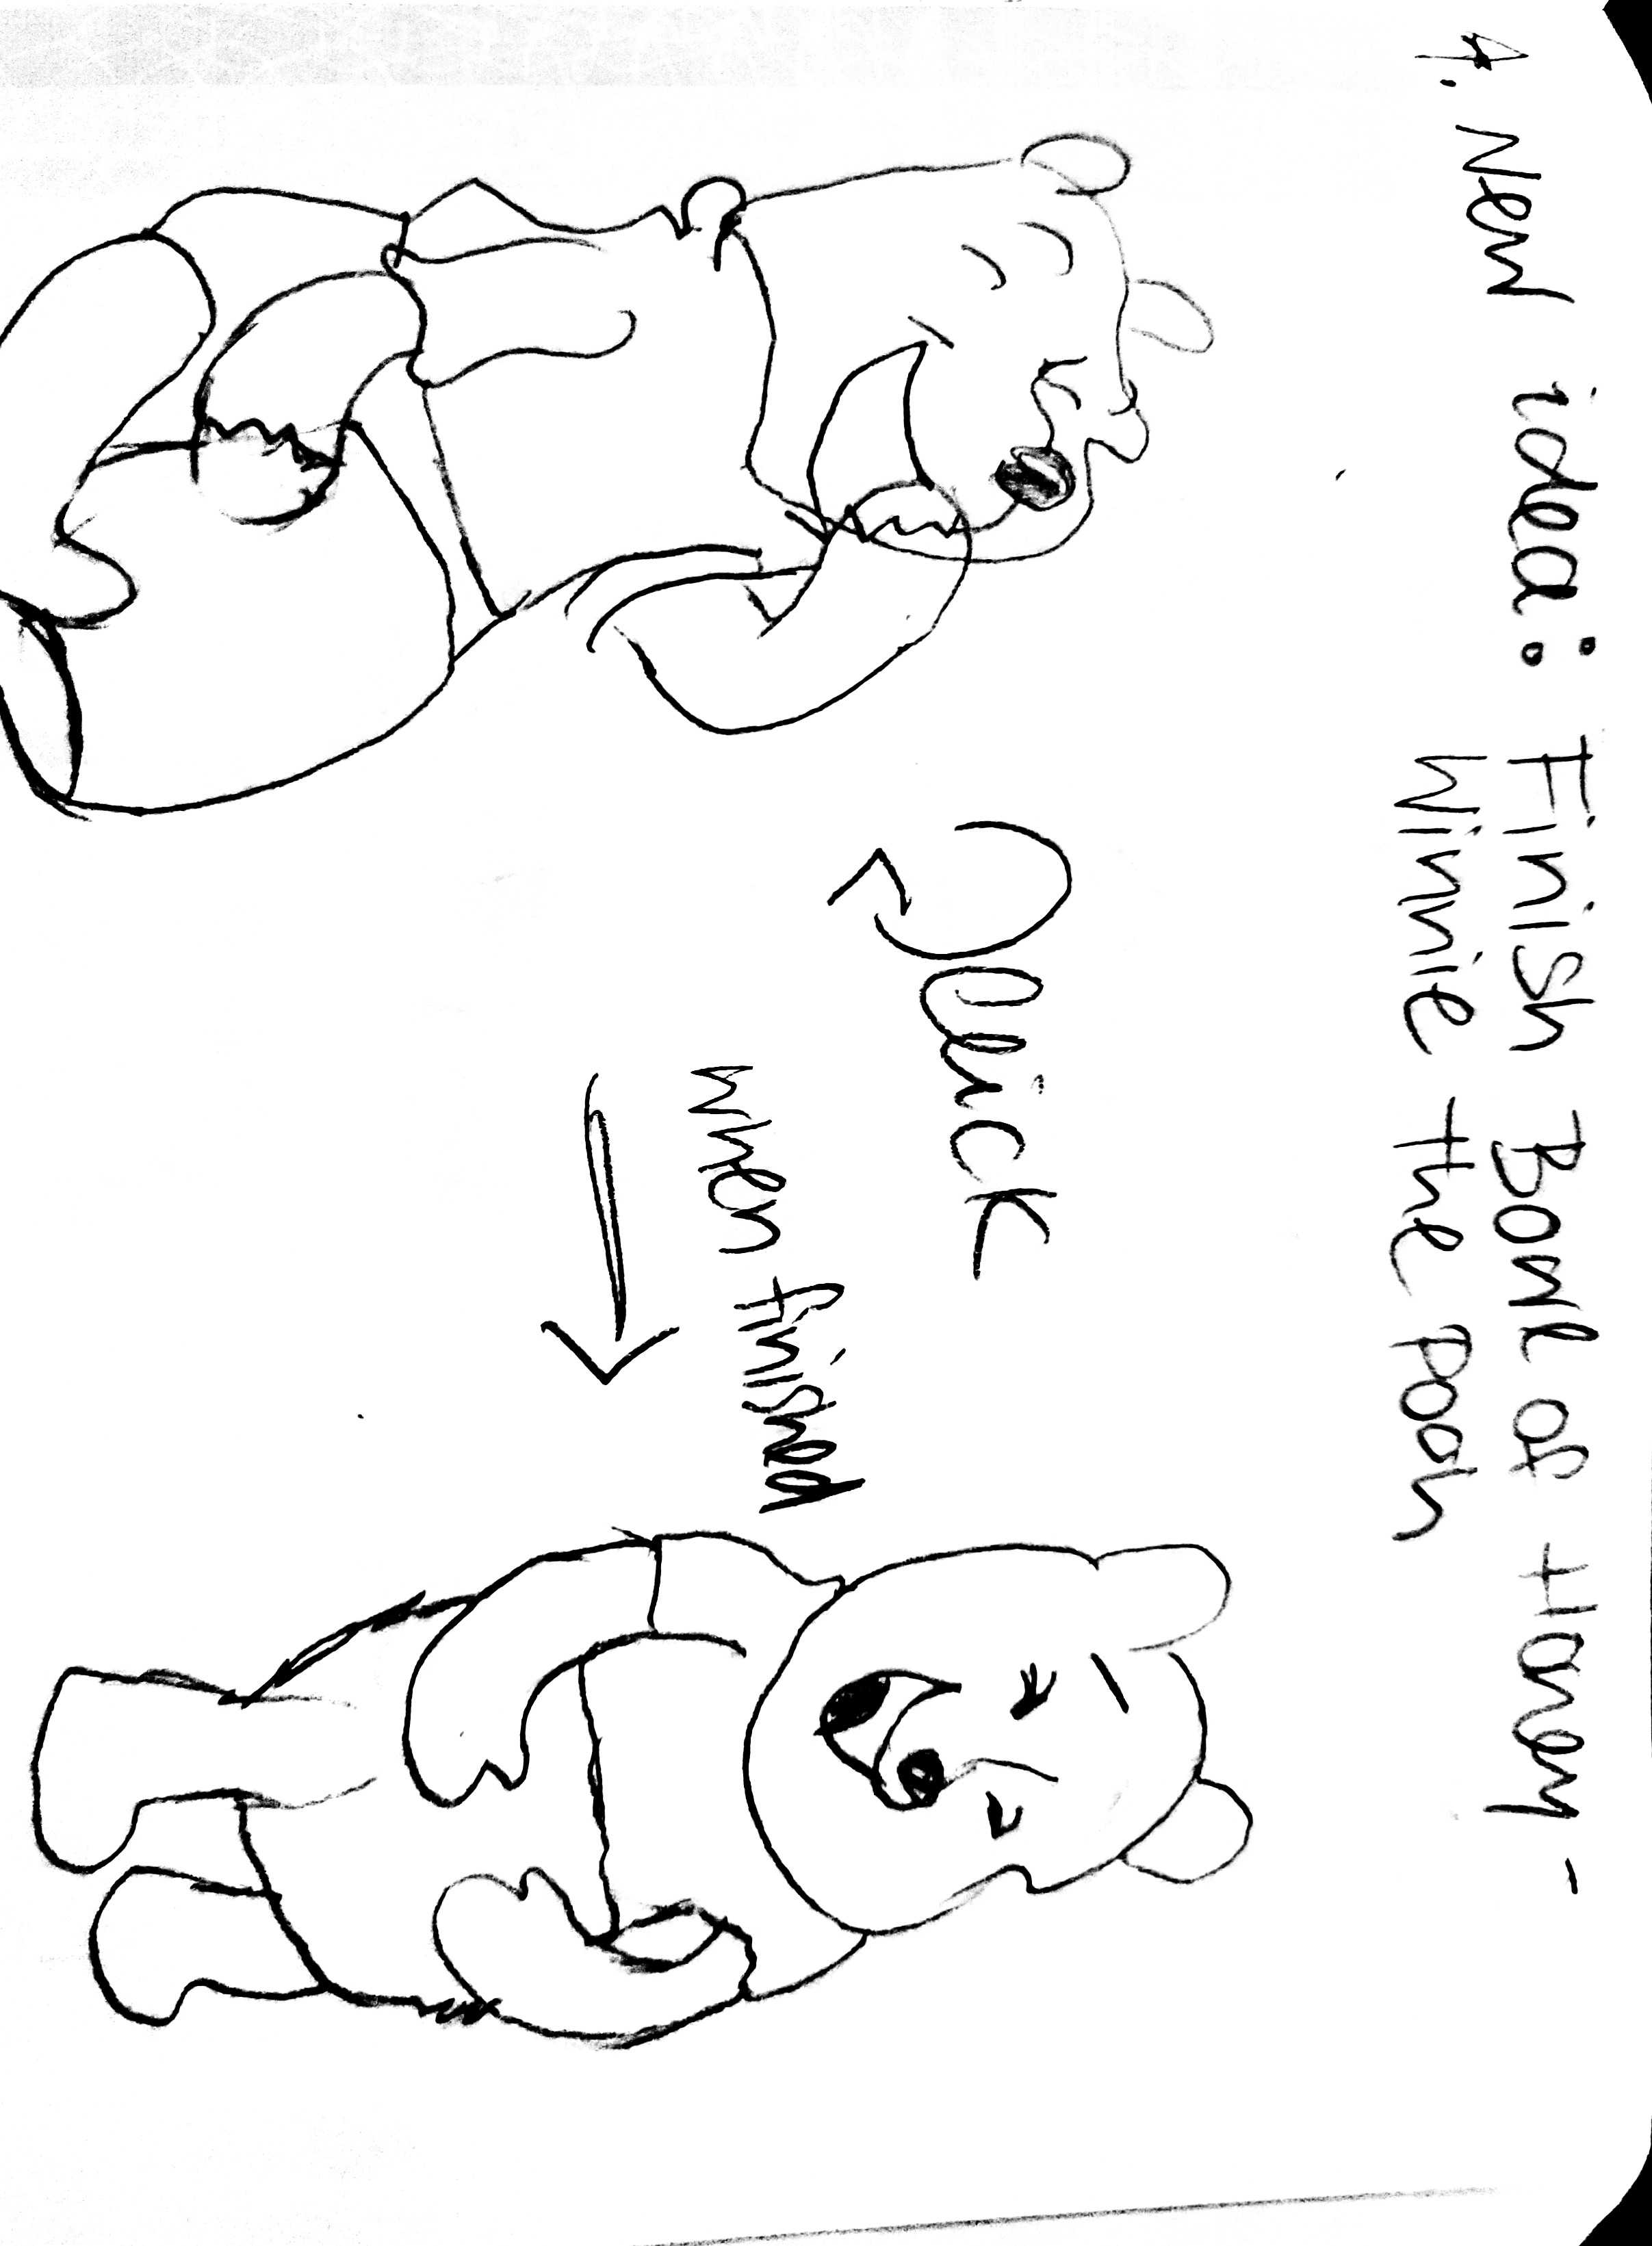 4. New idea: Finish Bowl of Honey -
Winnie the Pooh
Click
when finished